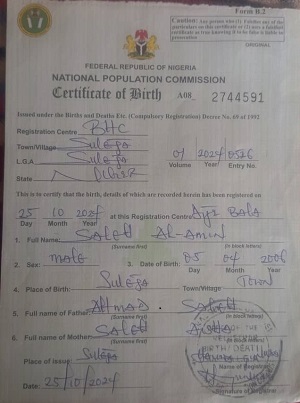 Form B.2
Caution: Any person who (1) Falsifies any of the
particulars on this certificate or (2) uses a falsified
certificate as true knowing it to be false is liable to
prosecution
ORIGINAL
FEDERAL REPUBLIC OF NIGERIA
NATIONAL POPULATION COMMISSION
Certificate of Birth A08 2744591
Issued under the Births and Deaths Etc. (Compulsory Registration) Decree No. 69 of 1992
Registration Centre BHC
Town/Village Suleja
L.G.A Suleja 01 2024 0526
State Niger Volume Year Entry No.
This is to certify that the birth, details of which are recorded herein has been registered on
25 10 2024 at this Registration Centre
Day Month Year
1. Full Name: Saleh Al-Amin
(Surname first) (in block letters)
2. Sex: male 3. Date of Birth: 05 04 2006
Day Month Year
4. Place of Birth: Suleja Town/Village: Town
5. Full name of Father: Ahmad Saleh
(Surname first) (in block letters)
6. Full name of Mother: Saleh
(Surname first) (in block letters)
Place of issue: Suleja
Name of Registrar
Date: 25/10/2024
Signature of Registrar